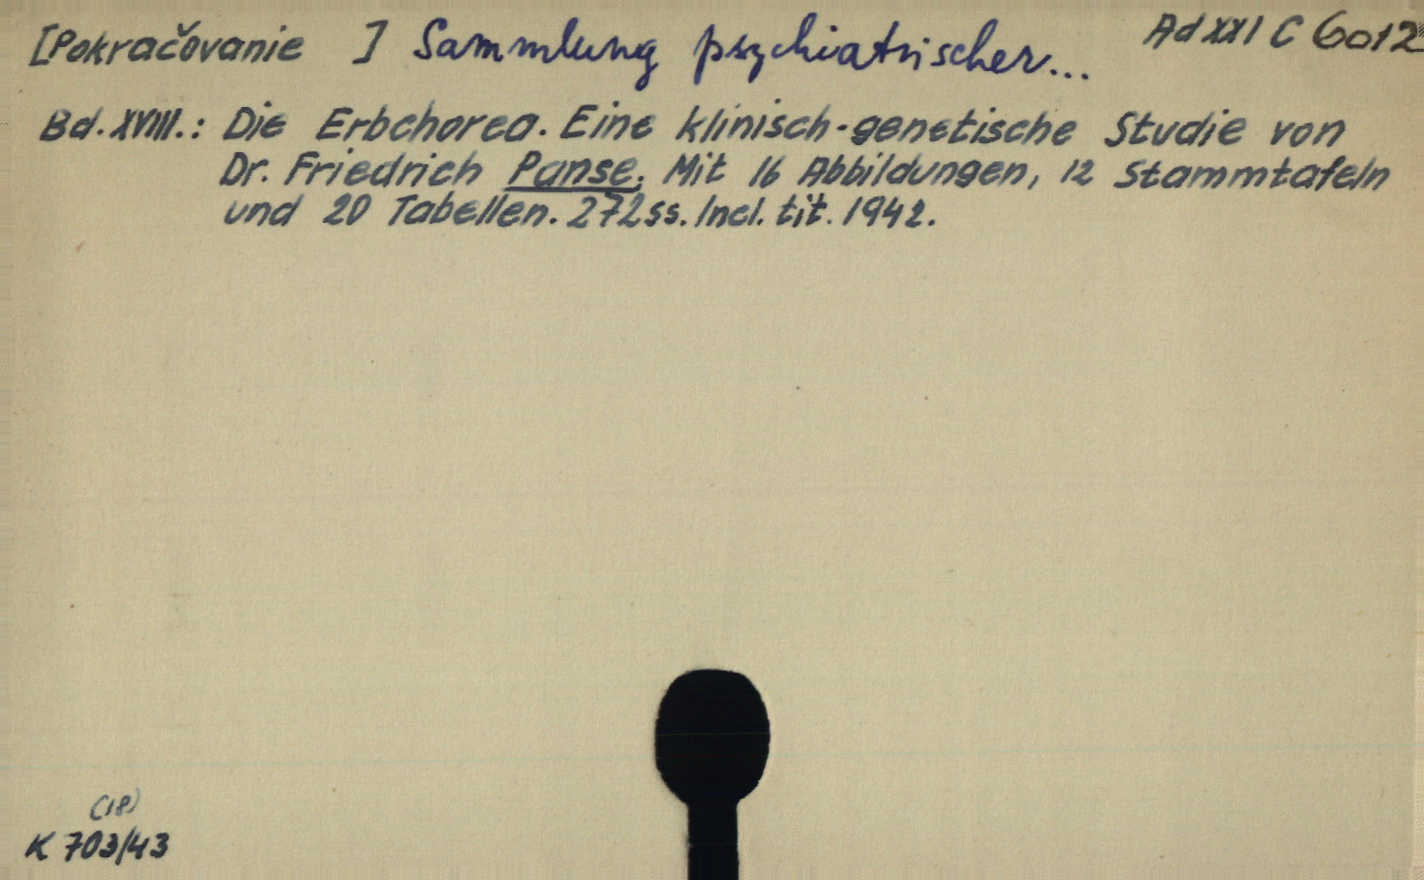 [Pokračovanie ] Sammlung psychiatrischer... Ad XXI C 6012
Bd. XVIII.: Die Erbchorea. Eine klinisch-genetische Studie von
Dr. Friedrich Panse. Mit 16 Abbildungen, 12 Stammtafeln
und 20 Tabellen. 272 ss. Incl. tit. 1942.
(18)
K 703/43